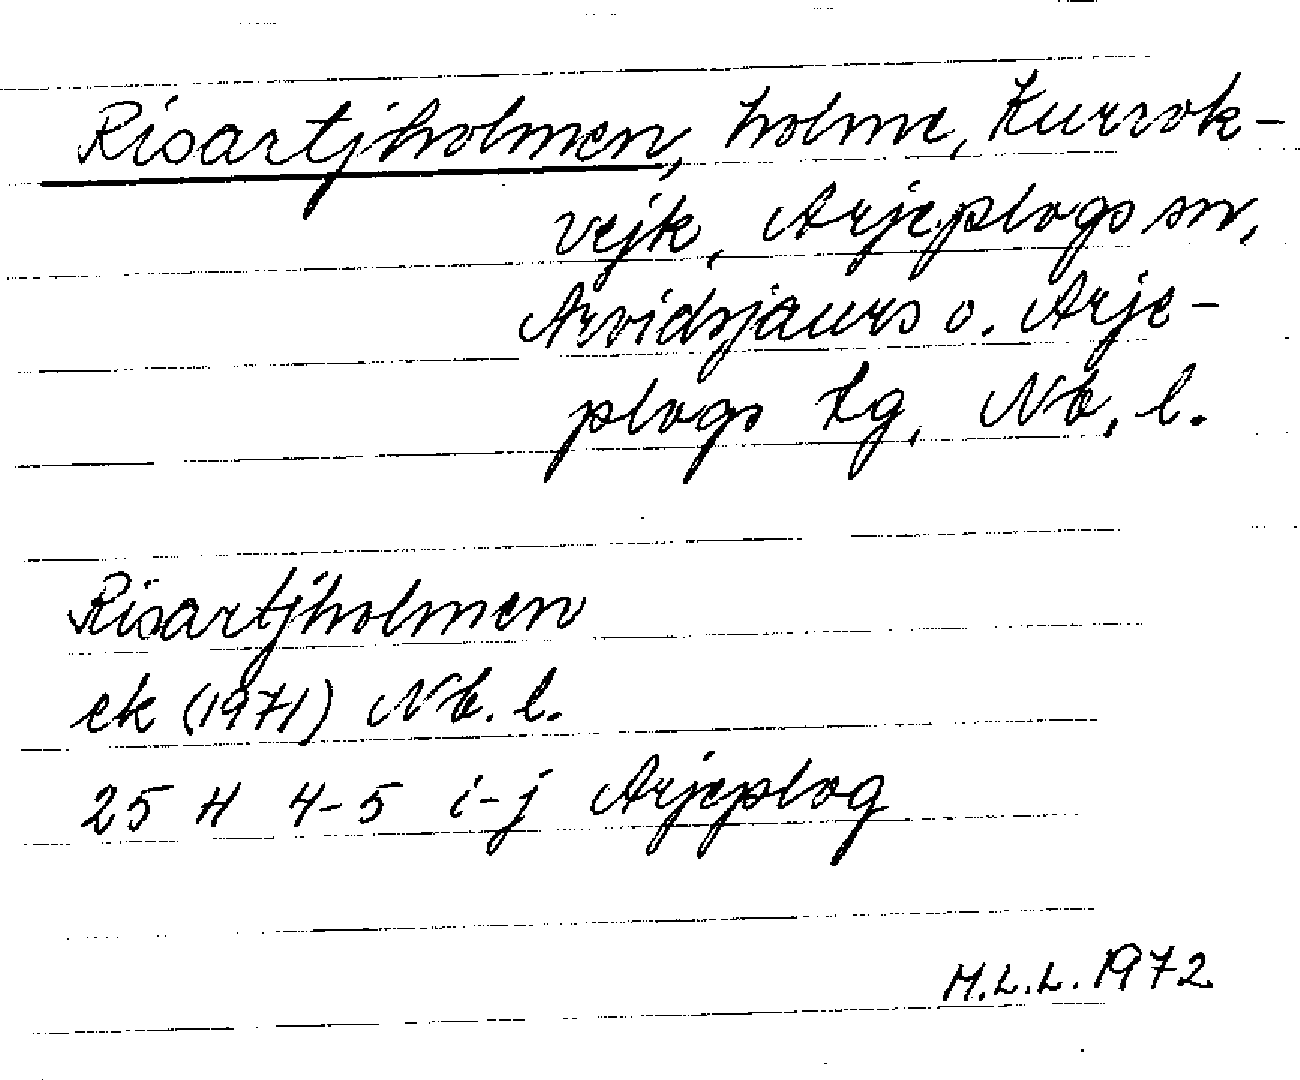 Risartjholmen, holme, Kurrok-
vejk, Arjeplogs sn,
Arvidsjaurs o. Arje-
plogs lg, Nb. l.
Risartjholmen
ek (1971) Nb. l.
25 H 4-5 i-j Arjeplog
M.L.L. 1972